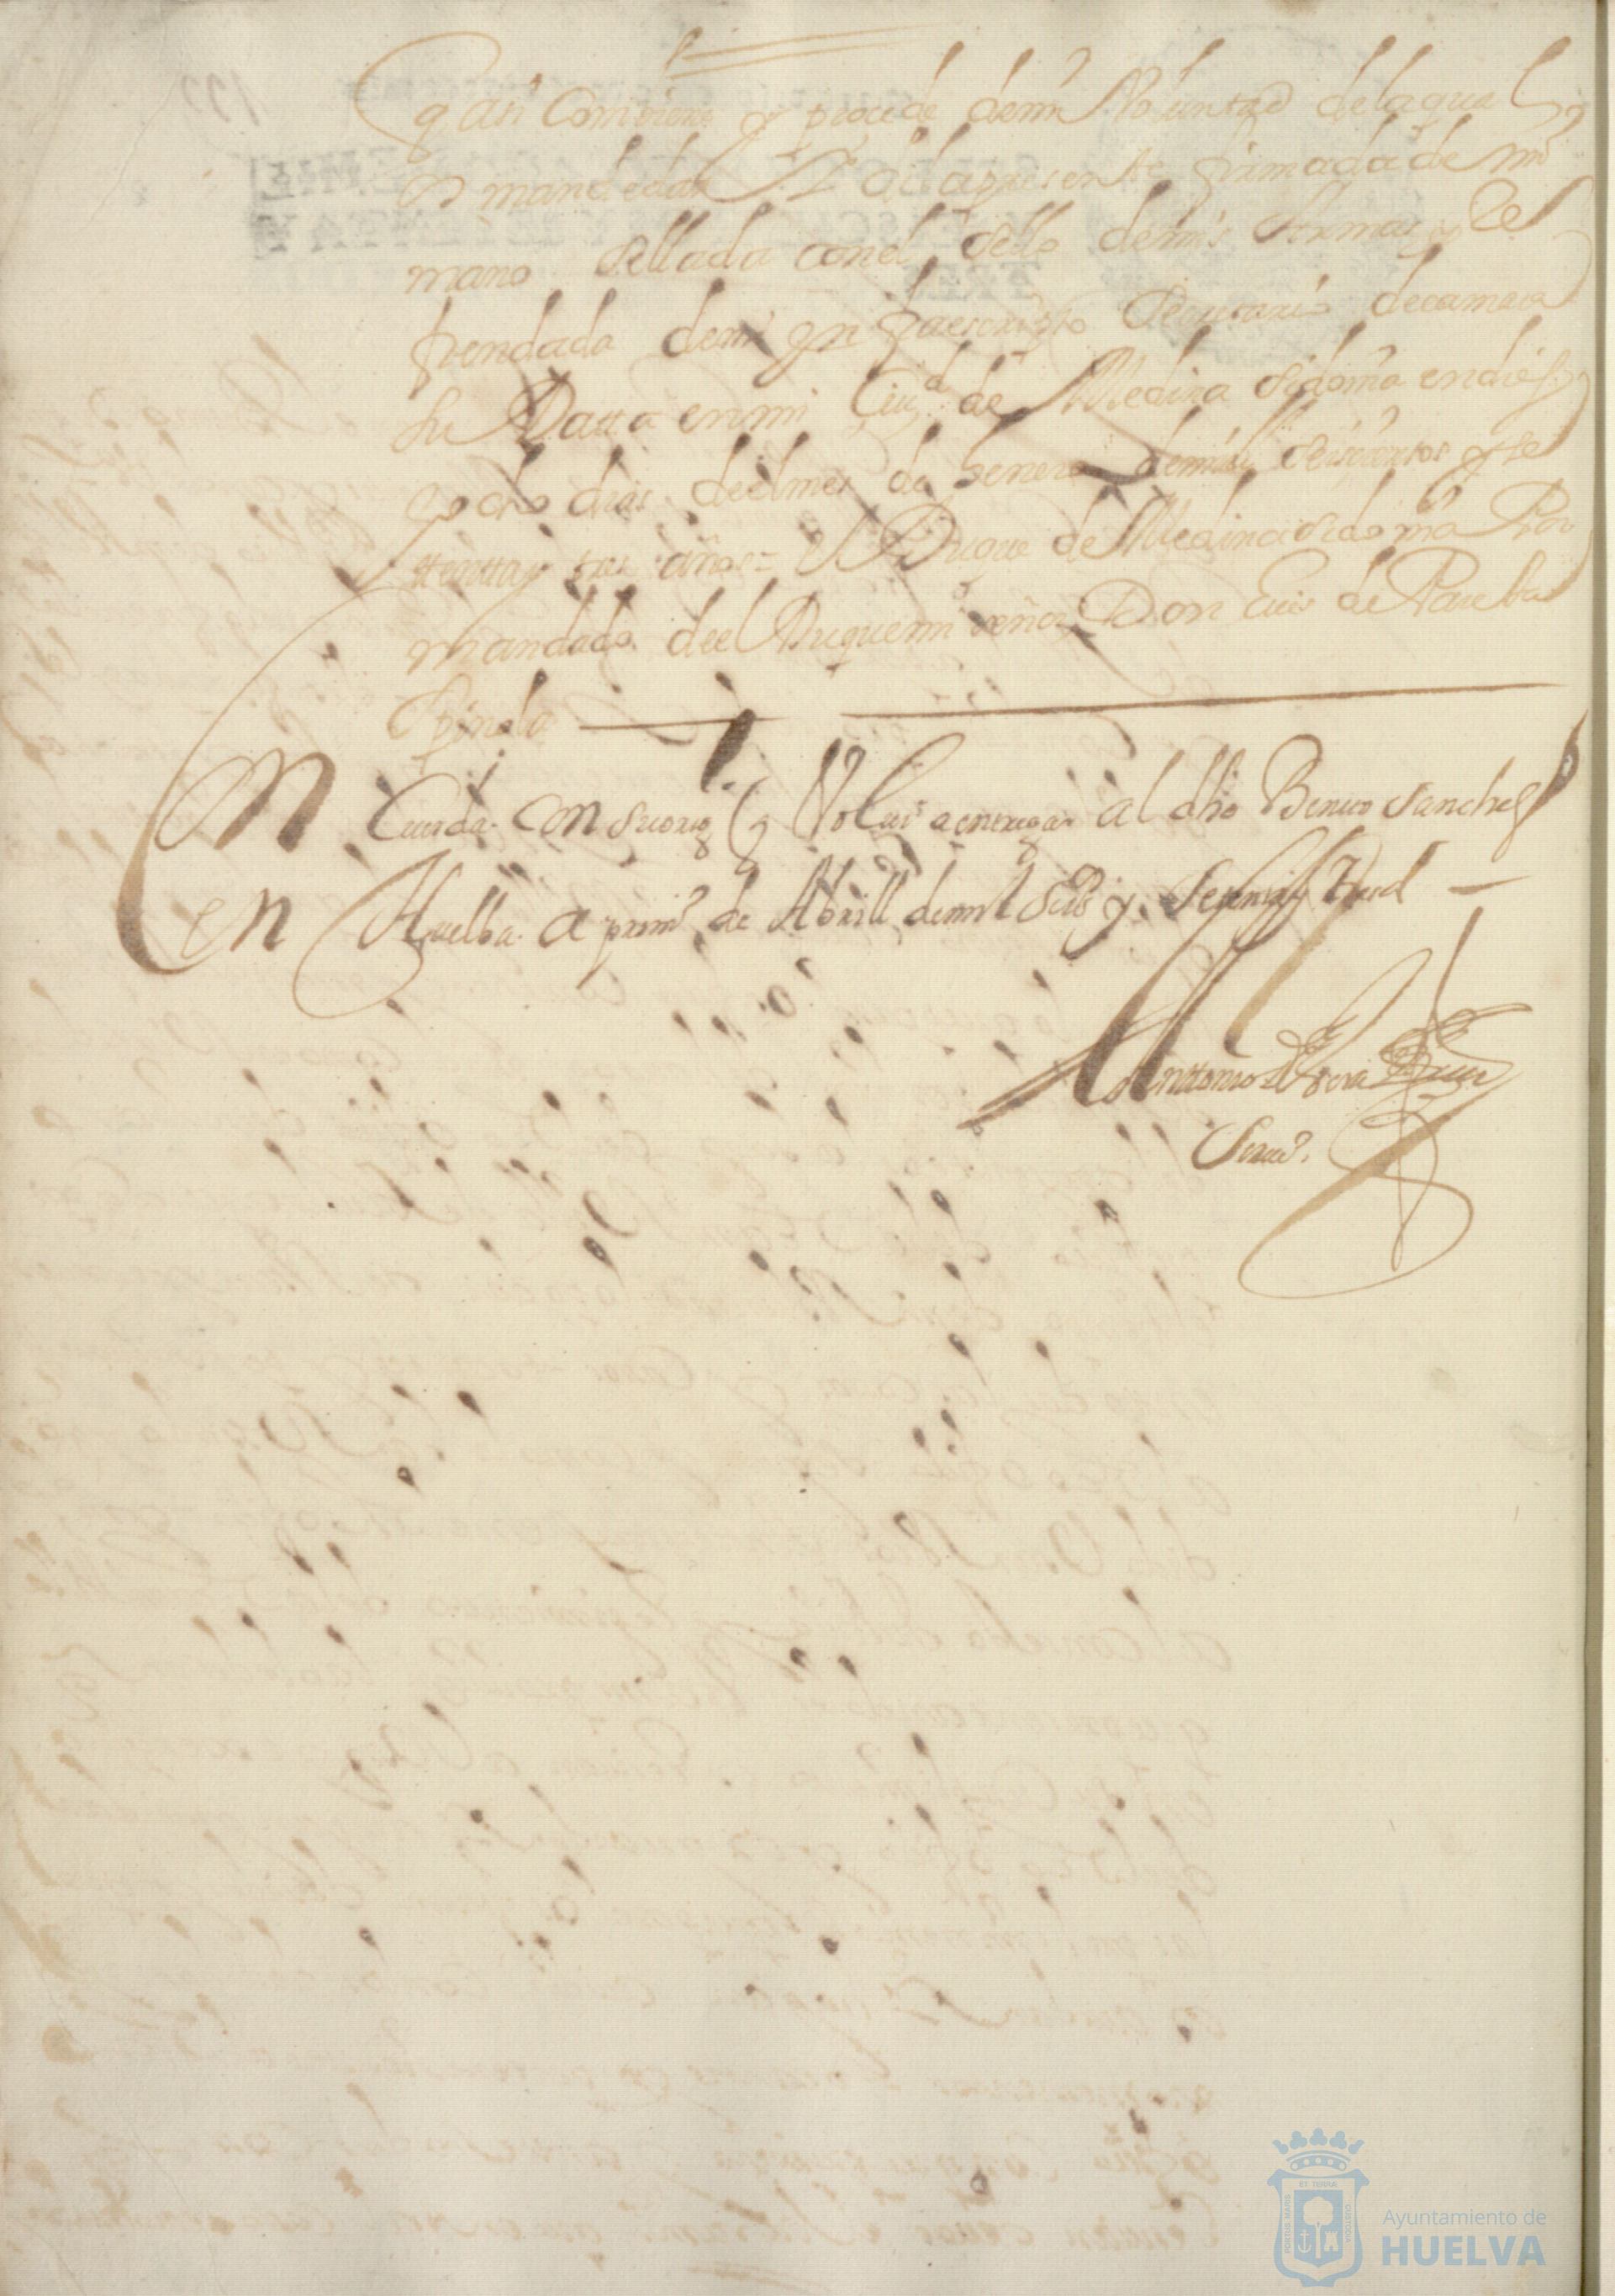 q asi conviene y procede de mi Voluntad de la qual
mande dar di la presente firmada de mi
mano sellada con el sello de mis Armas y Re
frendada de mi ynfraescripto Secretario de camara
su Data en mi Ciud de Medina Sidonia en diez y
ocho dias de el mes de henero de mill Seiscientos y se
tenta y tres años = el Duque de Medina Sidonia Por
mandado de el Duque mi señor Don Luis de
Spinola
Cuerda con su orig q Volui a entregar al dho Benito Sanches
En Huelba a prim.º de Abrill de mil Seisº y Setenta y tres
Anttonio de
Scriuº.
Ayuntamiento de
HUELVA